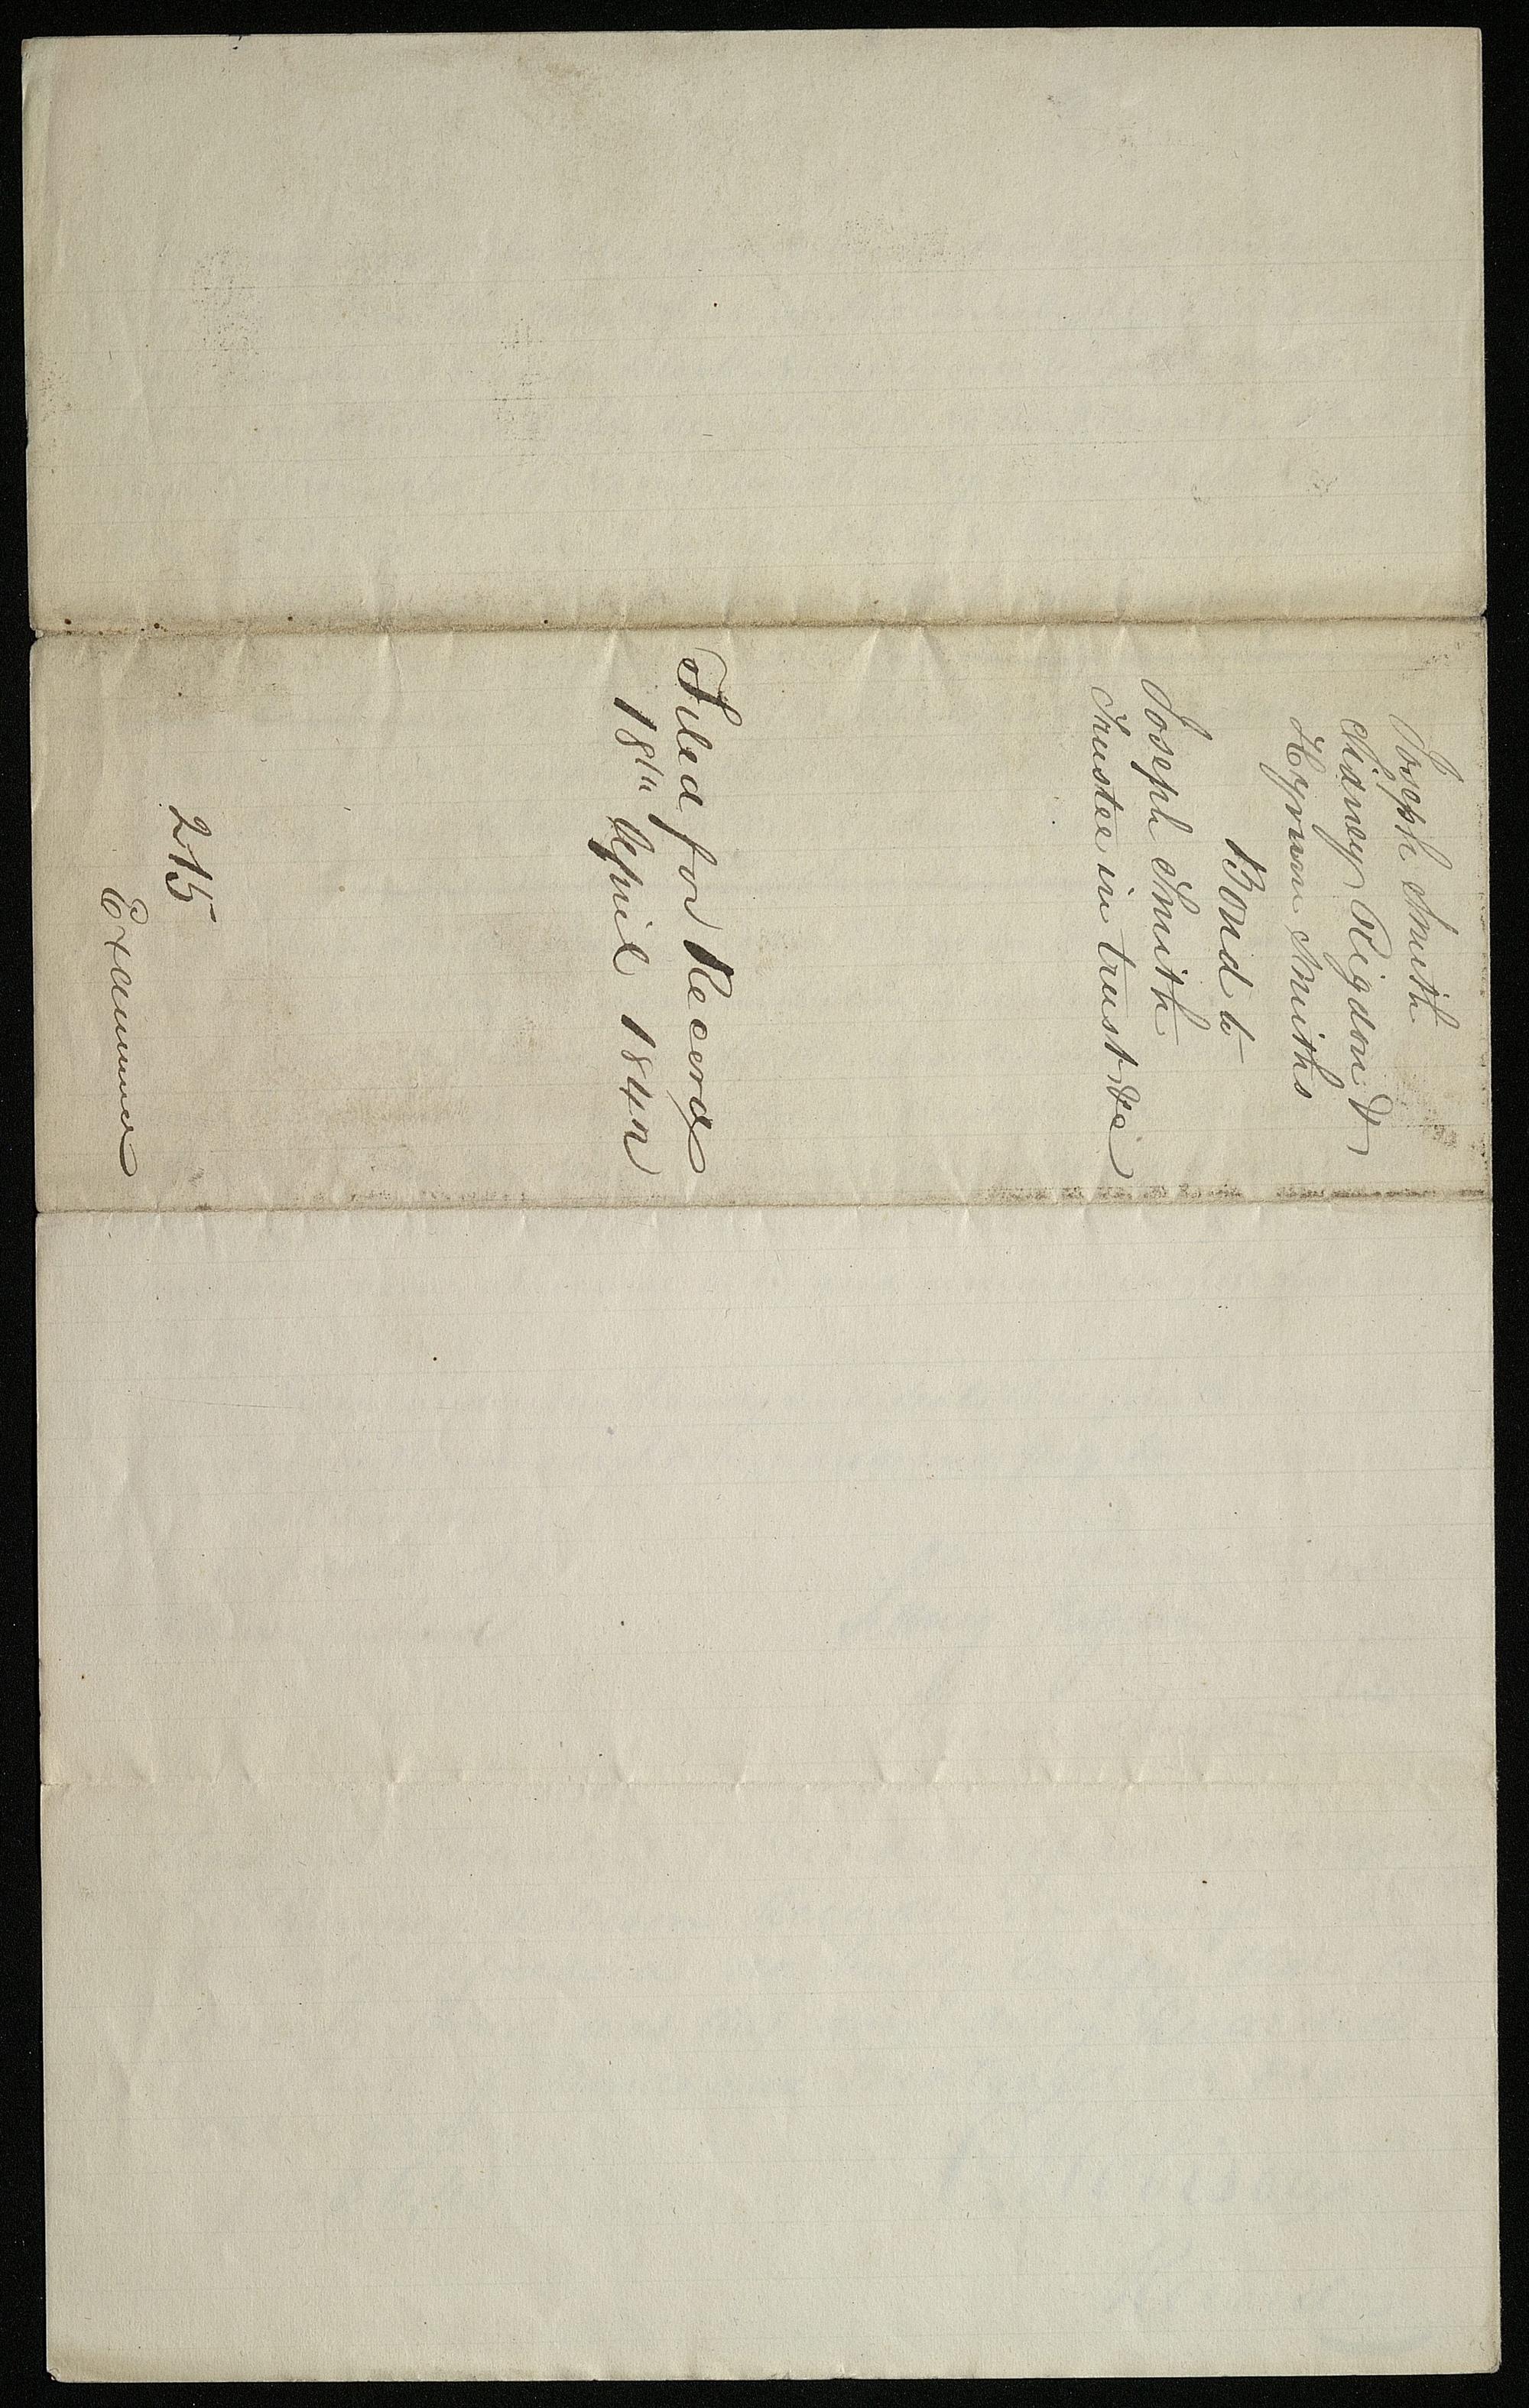 Joseph Smith
Sidney Rigdon &
Hyrum Smiths
Bond to
Joseph Smith
Trustee in trust &c
Filed for Record
18th April 1842
215
Examined